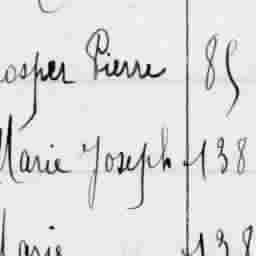 osper Pierre 85
Marie Joseph 138
Marie 138